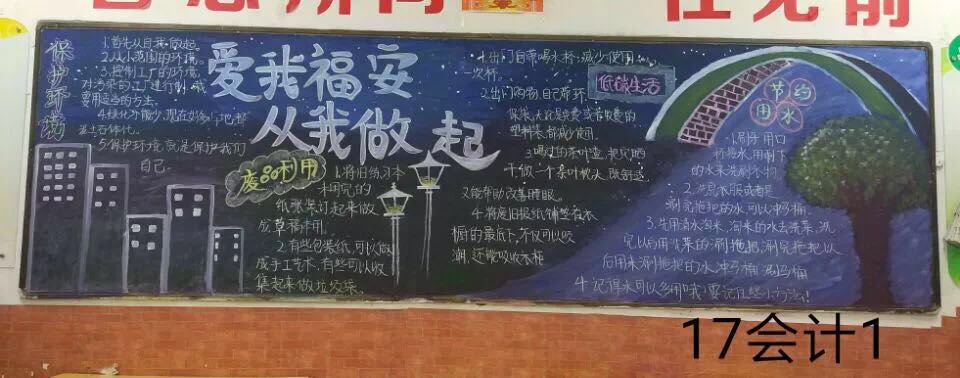 保护环境
1.首先从自我做起。
2.从小范围的环境。
3.控制工厂的环境,
要用适当的方法。
5.保护环境,就是保护我们
自己。
爱我福安
从我做起
废品利用
1.将旧练习本
未用完的
纸张装订起来做
成草稿本用。
2.有些包装纸,可以做
成手工艺术,有些可以收
集起来做垃圾袋。
1.出门自带喝水杯,减少使用
次杯。
低碳生活
2.出门购物,自己带环
保袋,无论是免费或者收费的
塑料袋都减少使用。
3.喝过的茶叶渣,把它晒
干做一个茶叶枕头,既舒适,
又能帮助改善睡眠。
4.将废旧报纸铺垫在衣
橱的最底下,不仅可以吸
潮,还能吸收衣柜
节约
用水
1.刷牙用口
杯接水,用剩下
的水来洗刷衣物
2.洗完衣服或者是
涮完拖把的水可以冲马桶。
3.先用清水淘米,淘米的水去洗菜,洗
完以后用洗菜的涮拖把,涮完拖把以
后用来涮拖把的水冲马桶
4.记得水可以多用哦!要记住些小方法!
17会计1